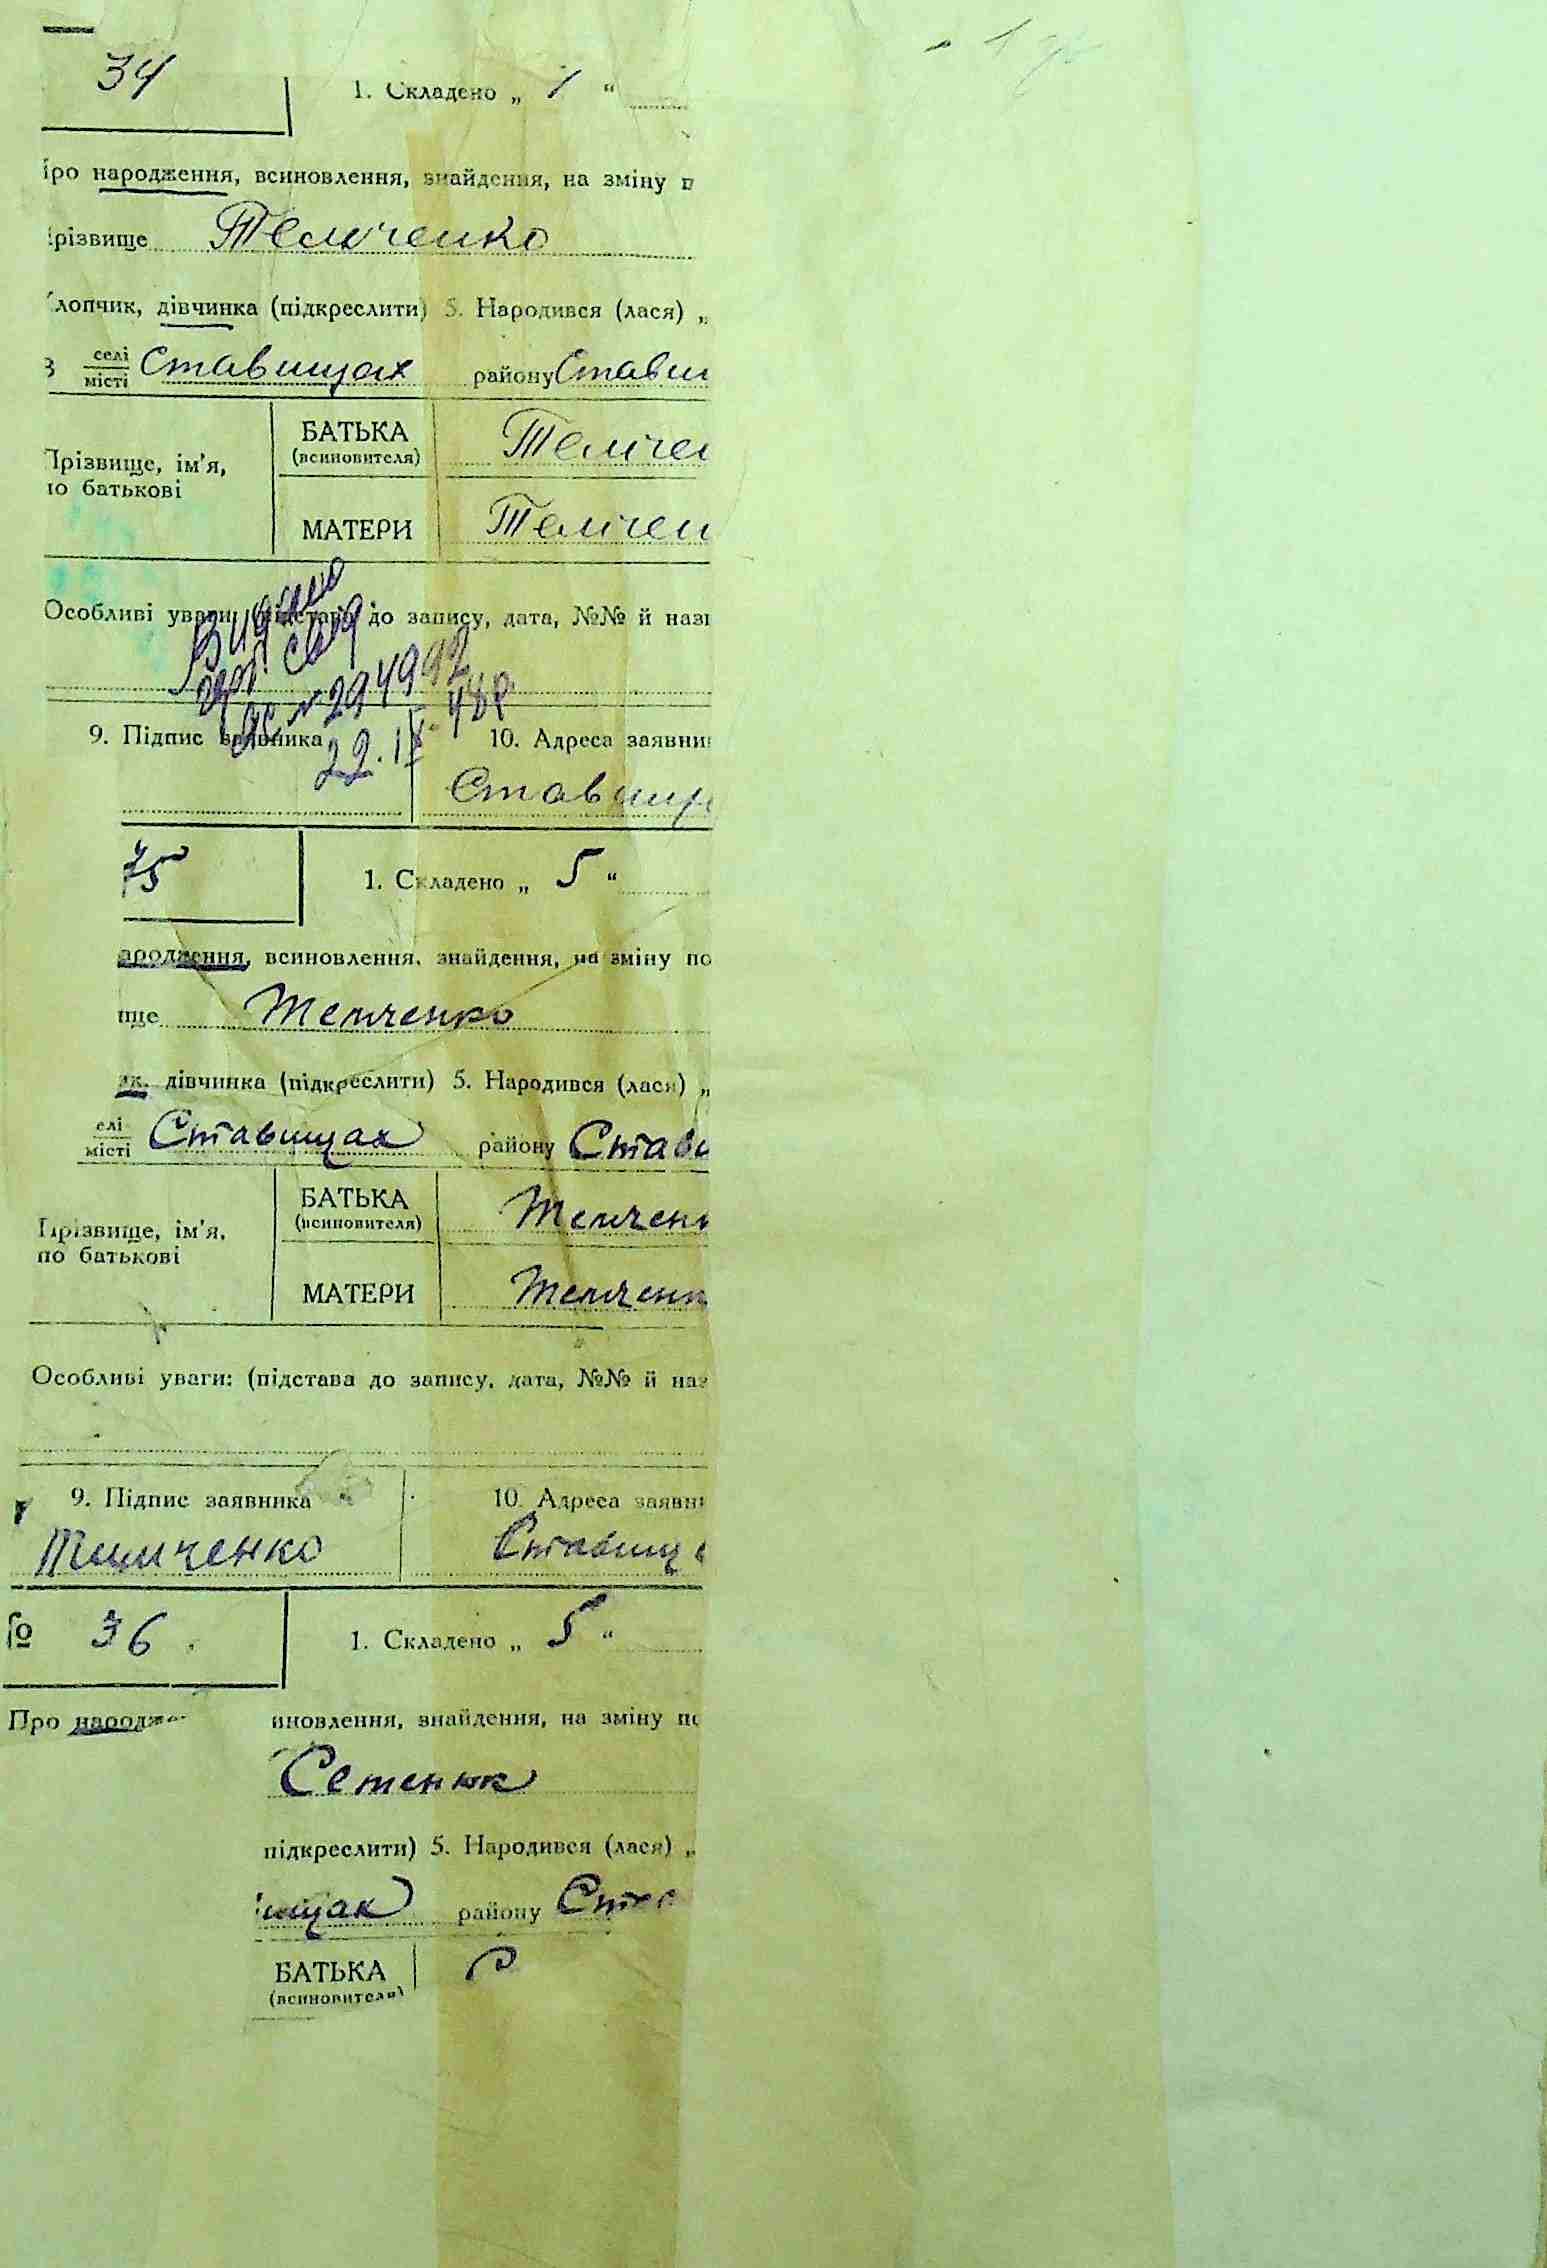 34
1. Складено „ 1 “
ро народження, всиновлення, знайдення, на зміну п
різвище Темченко
лопчик, дівчинка (підкреслити) 5. Народився (лася) „
в селі
місті Ставищах району Стави
БАТЬКА
(всиновителя) Темчен
Прізвище, ім'я,
по батькові
МАТЕРИ Темчен
Особливі уваги: (підстава до запису, дата, №№ й назв
Видано
свід
№ 294992
22. IX 48р
9. Підпис заявника 10. Адреса заявни
Ставищ
1. Складено „ 5 “
ародження, всиновлення, знайдення, на зміну по
ище Темченко
ик, дівчинка (підкреслити) 5. Народився (лася) „
елі
місті Ставищах району Стави
БАТЬКА
(всиновителя) Темчен
Прізвище, ім'я,
по батькові
МАТЕРИ Темченк
Особливі уваги: (підстава до запису, дата, №№ й наз
9. Підпис заявника 10. Адреса заявн
Темченко Ставищ
№ 36 1. Складено „ 5 “
Про народже иновлення, знайдення, на зміну по
Семенюк
підкреслити) 5. Народився (лася) „
ищах району Ста
БАТЬКА С
(всиновителя)